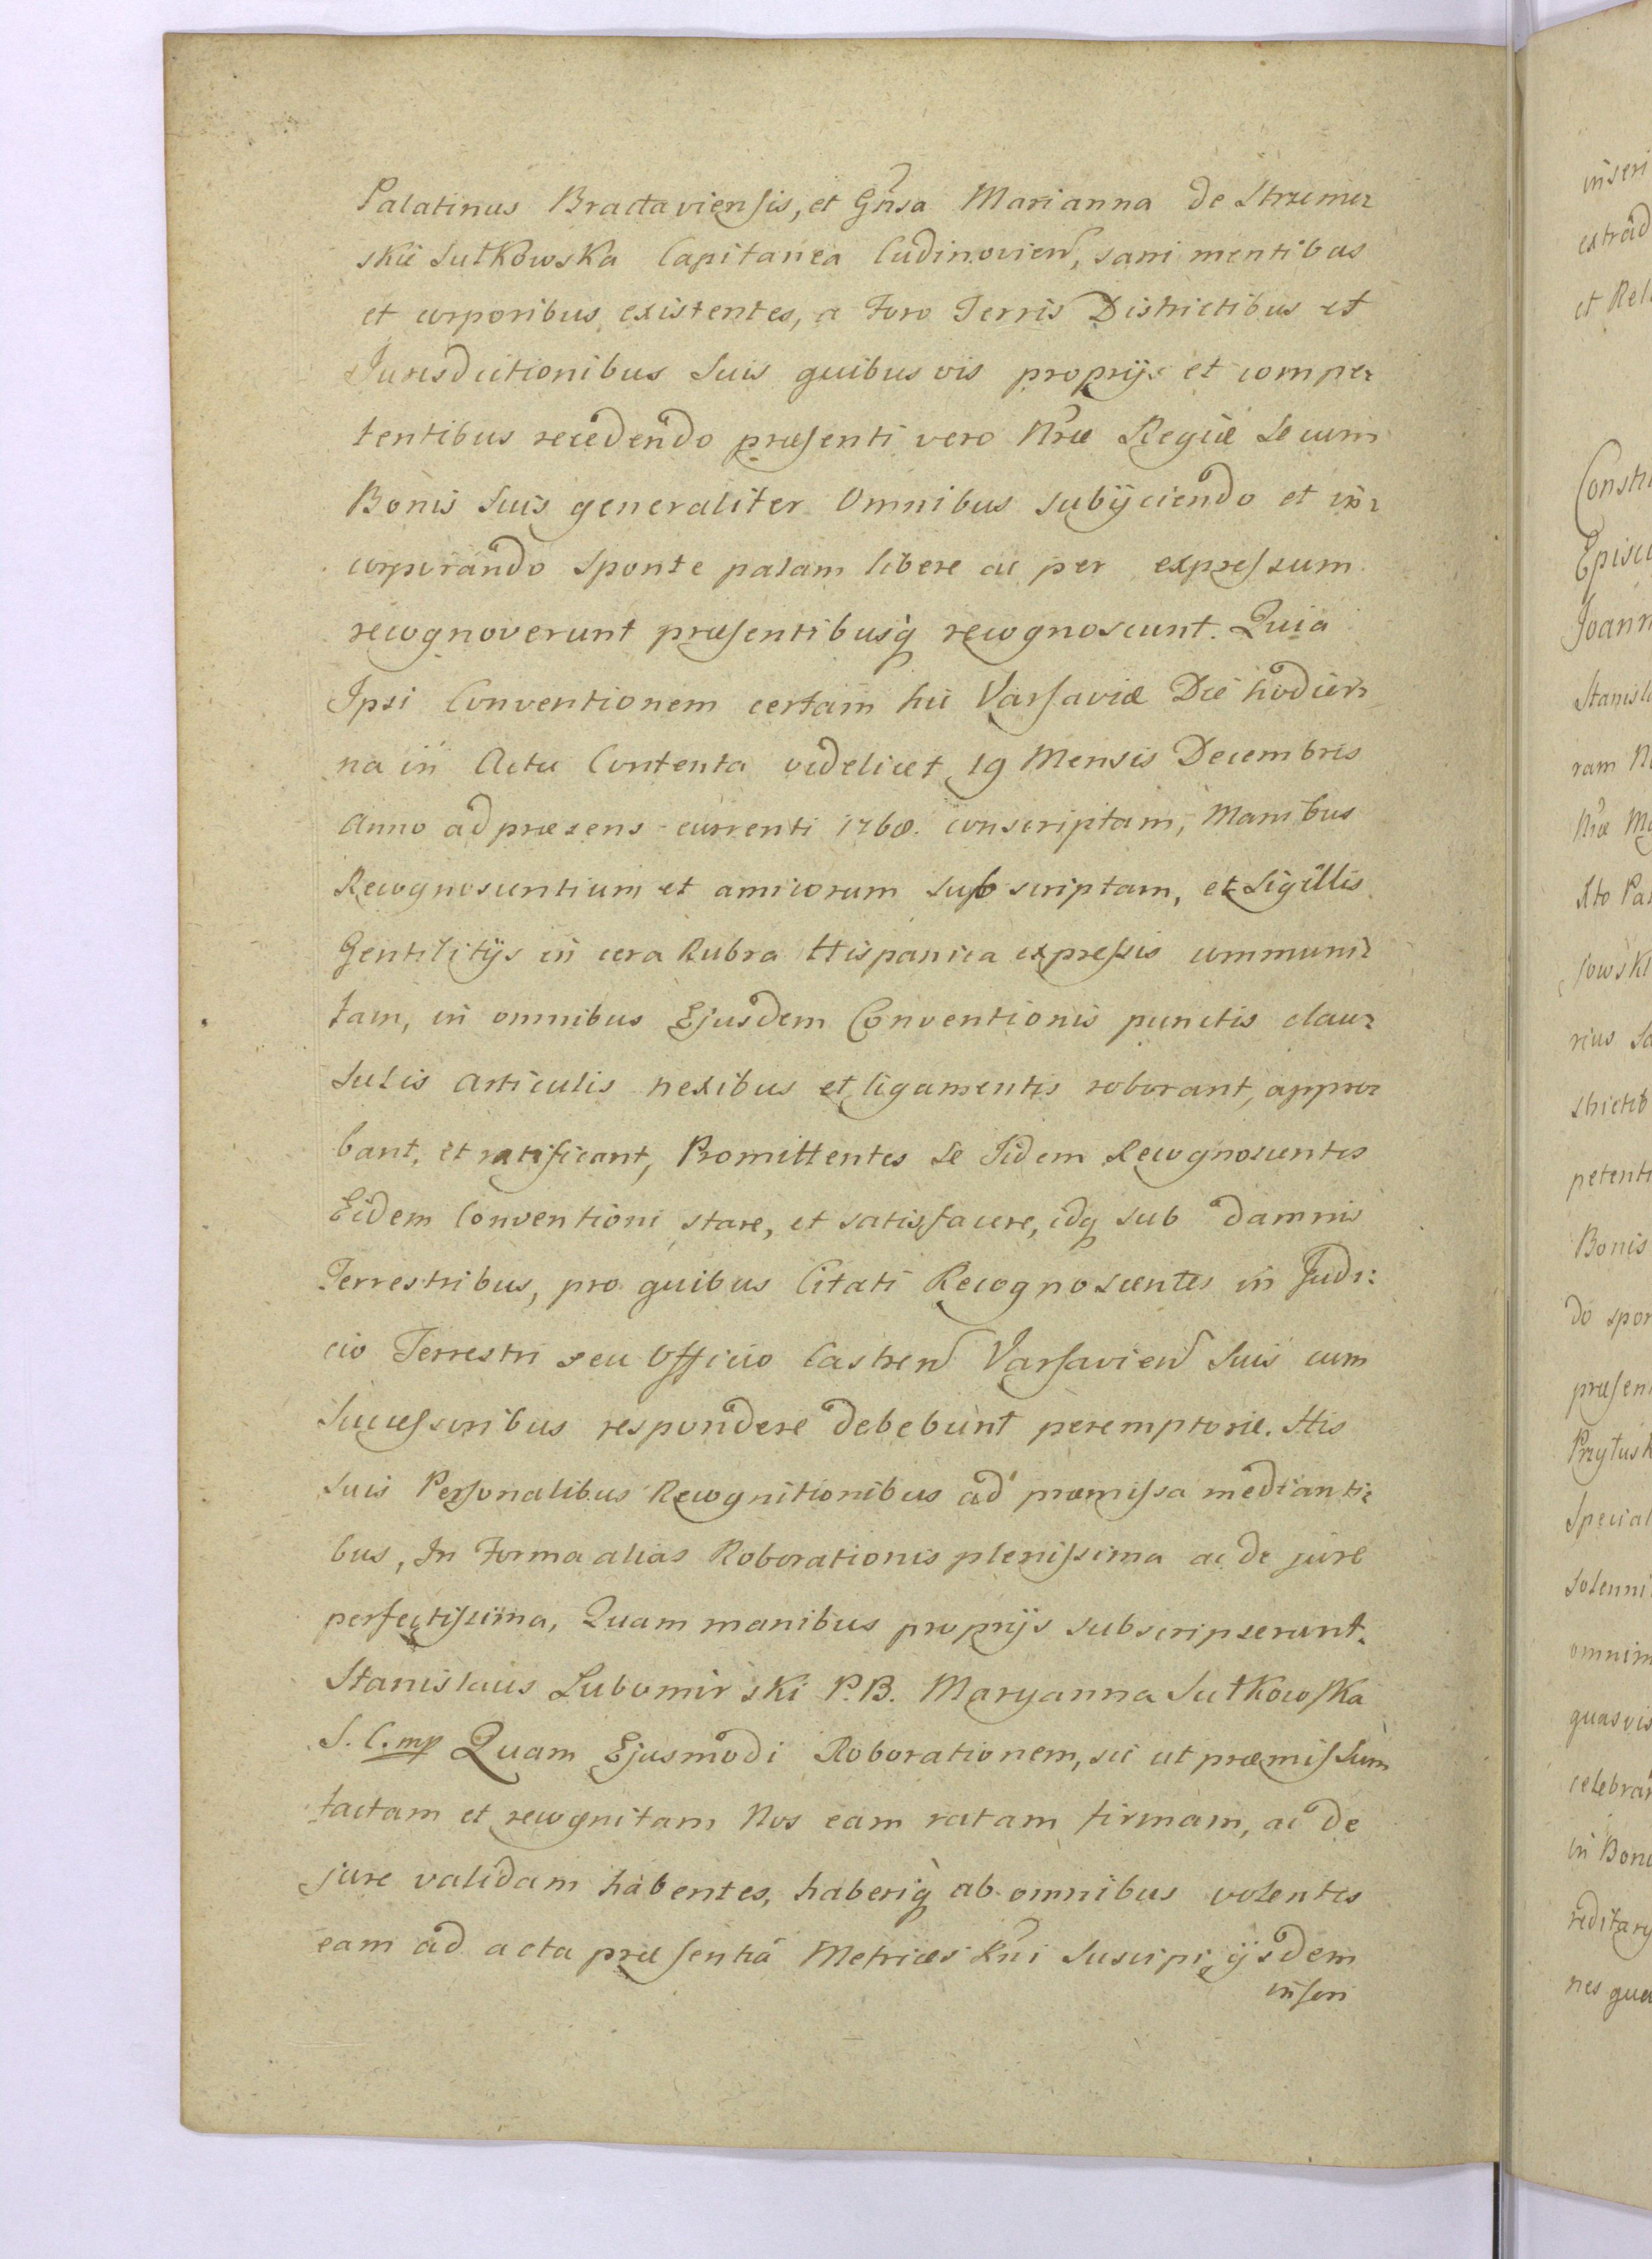 Palatinus Bractaviensis, et Gnsa Marianna de Strzemes
skie Sułkowska Capitanea Cudinovien, sani mentibus
et corporibus existentes, a Foro Terris Districtibus et
Jurisdictionibus Suis quibusvis proprijs et compe-
tentibus recedendo præsenti vero Nræ Regiæ Se cum
Bonis Suis generaliter Omnibus subijciendo et in-
corporando sponte palam libere ac per expressum
recognoverunt præsentibusq recognoscunt. Quia
Ipsi Conventionem certam hic Varsaviæ Die hodier-
na in Actu Contenta videlicet 19 Mensis Decembris
Anno ad præsens currenti 1760. conscriptam, Manibus
Recognoscentium et amicorum subscriptam, et Sigillis
Gentilitijs in cera Rubra Hispanica expressis communi-
tam, in omnibus Ejusdem Conventionis punctis clau-
sulis articulis nexibus et ligamentis roborant, appro-
bant, et ratificant, Promittentes Se Iidem Recognoscentes
Eidem Conventioni stare, et satisfacere, idq sub damnis
Terrestribus, pro quibus Citati Recognoscentes in Judi:
cio Terrestri seu Officio Castren Varsavien Suis cum
Successoribus respondere debebunt peremptorie. His
suis Personalibus Recognitionibus ad præmissa medianti-
bus, In Forma alias Roborationis plenissima ac de jure
perfectissima, Quam manibus proprijs subscripserunt.
Stanislaus Lubomirski P.B. Maryanna Sułkowska
S. C. mp Quam Ejusmodi Roborationem, sic ut præmissum
factam et recognitam Nos eam ratam firmam, ac de
jure validam habentes, haberiq ab omnibus volentes
eam ad acta præsentia Metrices Rni Suscipi, ijsdem
inseri
inseri
extrad
et Rel
Consti
Episc
Joann
Stanisl
ram N
Nræ M
Xto Pa
sowski
rius Sa
strictib
petenti
Bonis
do spon
præsen
Przyłusk
Special
solenni
omnim
quasvis
celebra
in Bon
reditary
nes qua